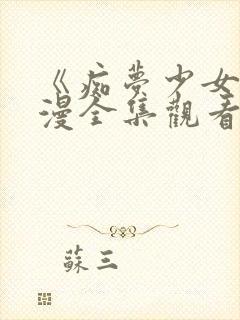 《痴夢少女
漫全集觀看
蘇三